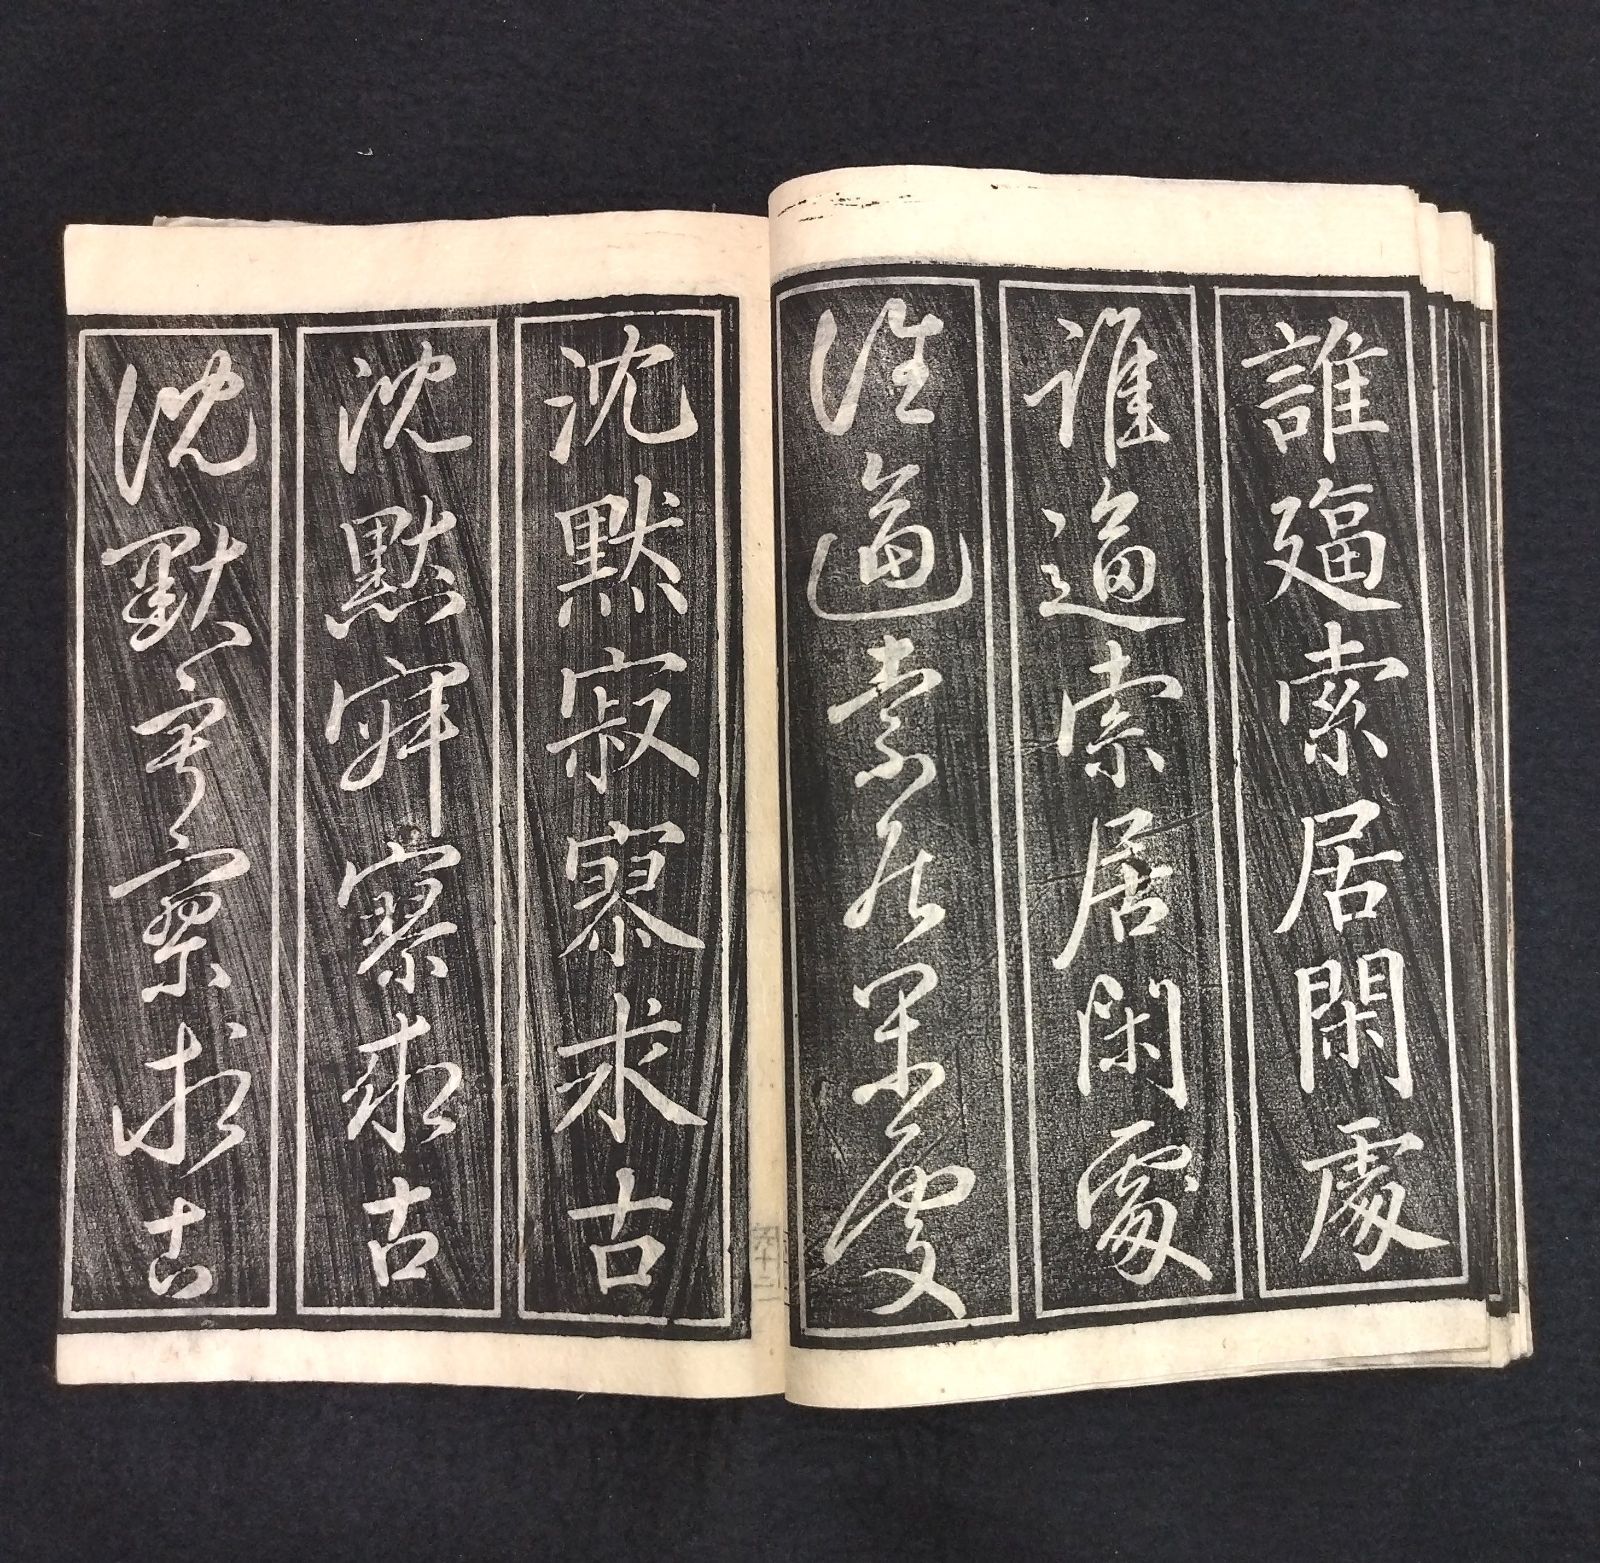 誰逼索居閑處
誰逼索居閑處
誰逼索居閑處
沈黙寂寥求古
沈黙寂寥求古
沈默寂寥求古